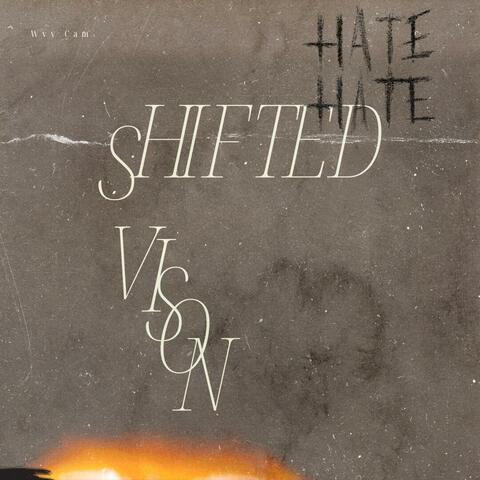 Wvy Cam.
HATE
HATE
SHIFTED
VISON